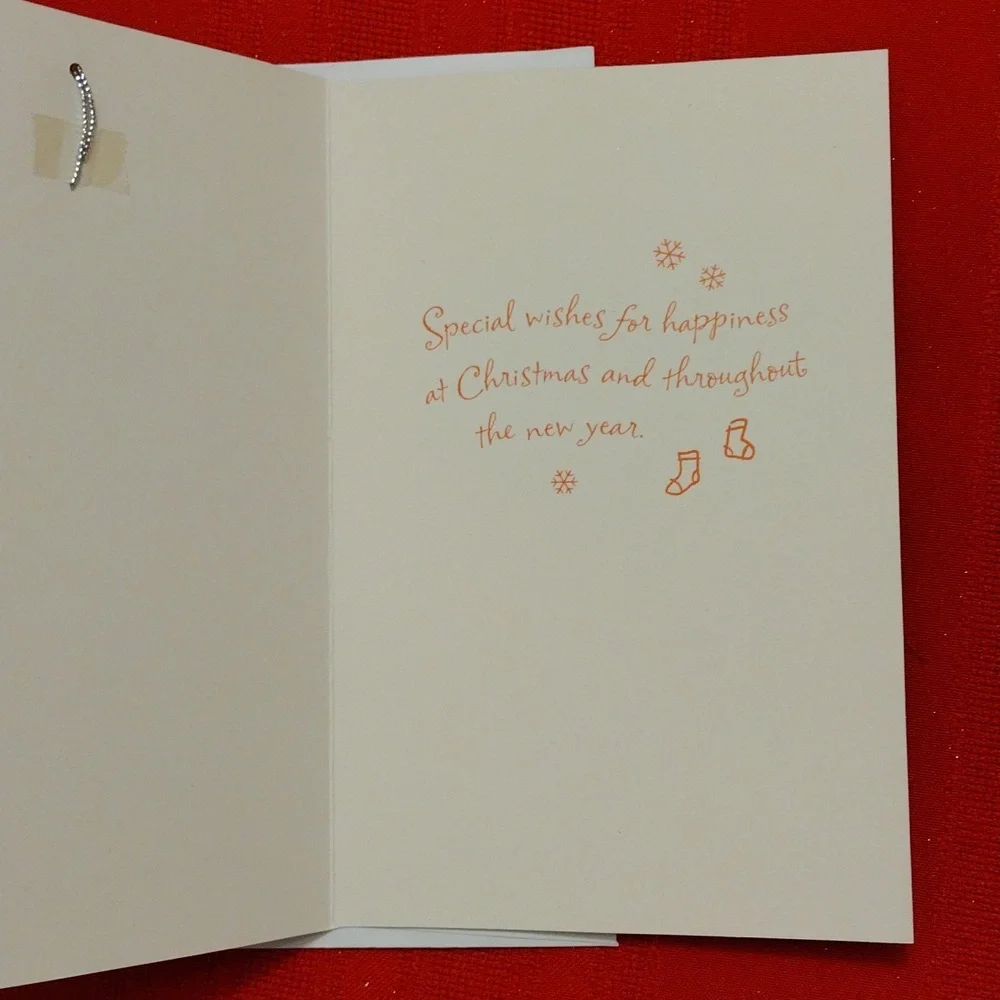 Special wishes for happiness
at Christmas and throughout
the new year.